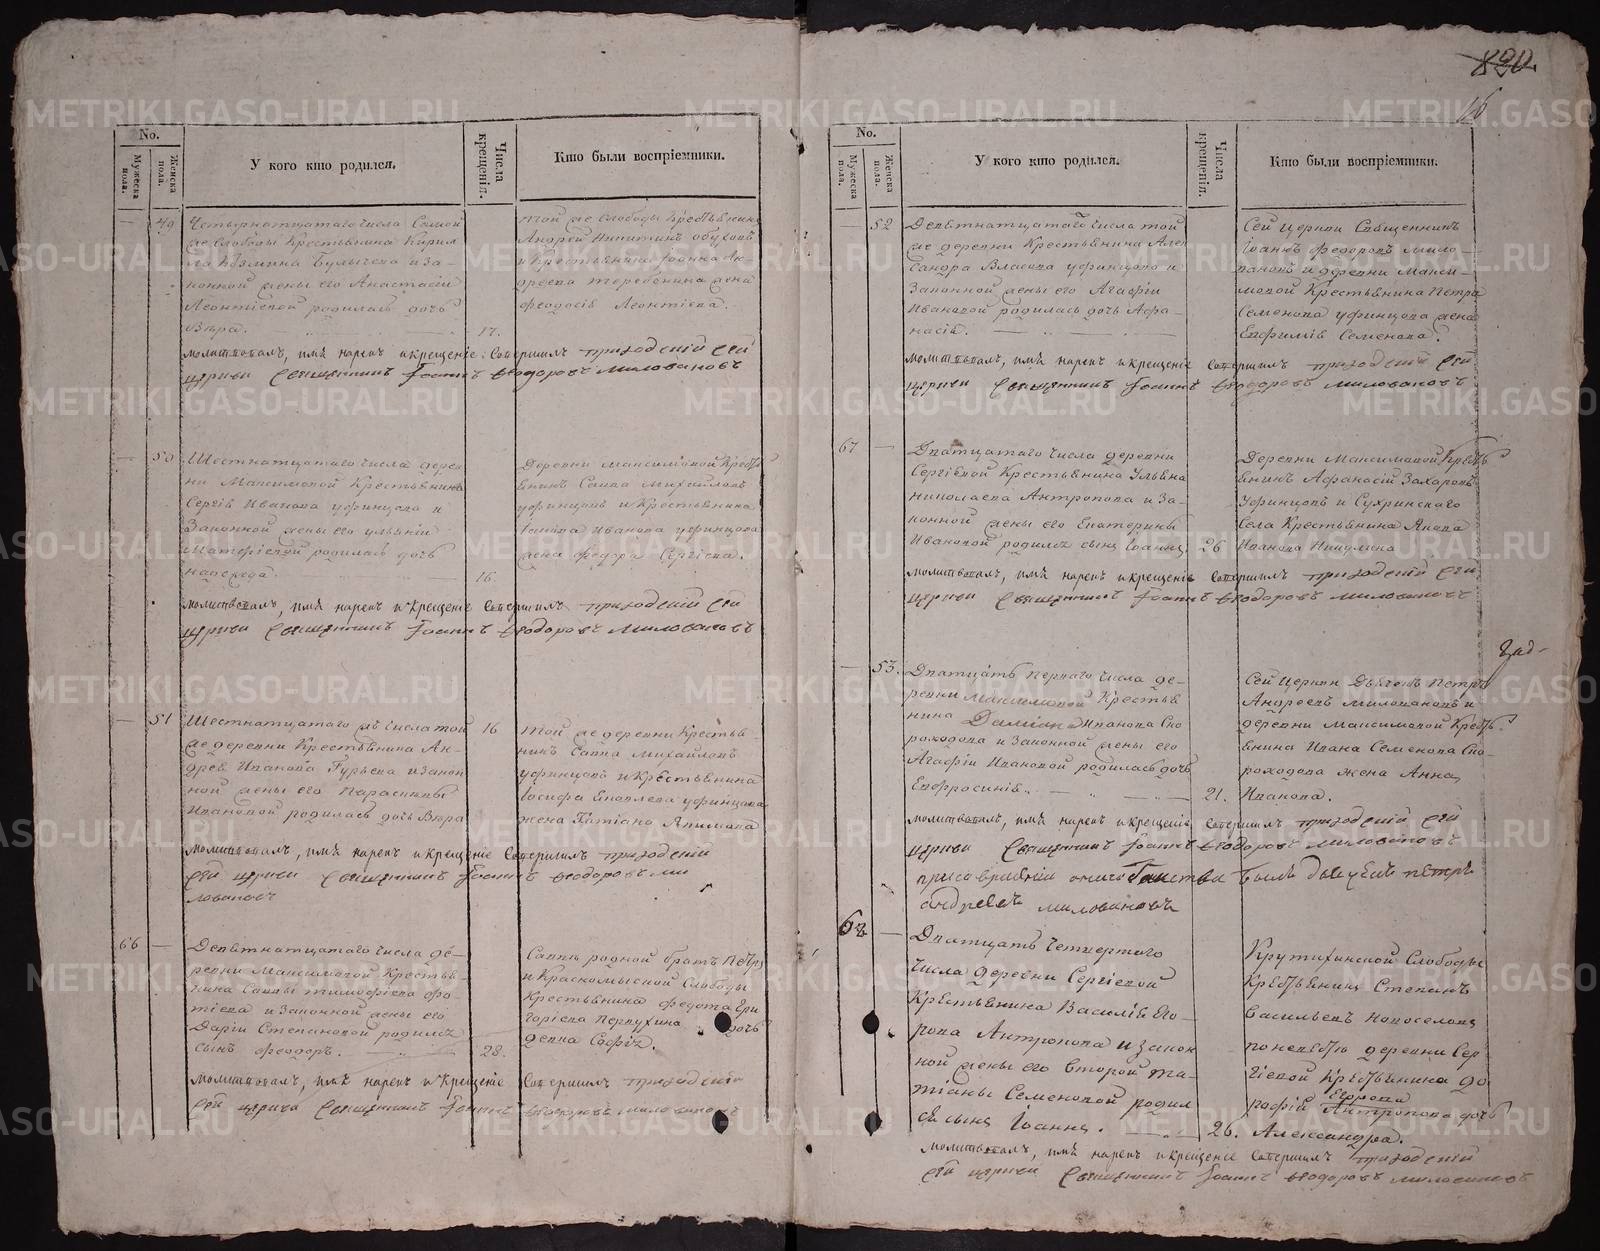 820.
16
No.
Мужеска пола.
Женска пола.
У кого кто родился.
Числа крещенія.
Кто были воспріемники.
49
Четырнатцатаго числа Самой
же Слободы Крестьянина Кирил
ла Козмина Булычева и за-
конной жены его Анастасіи
Леонтіевой родилась дочь
Вѣра.
17.
той же слободы Крестьянинъ
Андрей Никитинъ
и Крестьянина
жена
Феодосія Леонтіева.
молитвовалъ, имя нарекъ и крещеніе совершилъ приходскій сей
церкви Священникъ Іоаннъ Феодоровъ Миловановъ
50
Шестнатцатаго числа дерев
ни Максимовой Крестьянина
Сергія Иванова Уфинцова и
Законной жены его Ульяніи
Матфіевой родилась дочь
Надежда.
16.
Деревни Максимовой Кресть
янинъ Савва Михайловъ
Уфинцовъ и Крестьянина
Иванова Уфинцова
жена Федора Сергіева.
молитвовалъ, имя нарекъ и крещеніе совершилъ приходскій сей
церкви Священникъ Іоаннъ Феодоровъ Миловановъ
51
Шестнатцатаго жъ числа той
же деревни Крестьянина Ан-
дрея Иванова Гурьева и закон
ной жены его Парасковьи
Ивановой родилась дочь Вѣра
16
той же деревни Крестья-
нинъ Савва Михайловъ
Уфинцовъ и Крестьянина
Іосифа Яковлева Уфинцова
жена Татіана Акимова
молитвовалъ, имя нарекъ и крещеніе совершилъ приходскій
сей церкви Священникъ Іоаннъ Феодоровъ Ми
ловановъ
66
Девятнатцатаго числа де-
ревни Максимовой Крестья-
нина Саввы Тимофіева Фо-
тіева и Законной жены его
Даріи Степановой родился
сынъ Феодоръ.
28.
Саввы родной братъ Петръ
и Красномысской Слободы
Крестьянина Федота Гри
горіева Первухина дочь
девка Софія.
молитвовалъ, имя нарекъ и крещеніе совершилъ приходскій
сей церкви Священникъ Іоаннъ Феодоровъ Миловановъ
No.
Мужеска пола.
Женска пола.
У кого кто родился.
Числа крещенія.
Кто были воспріемники.
52
Девятнатцатаго числа той
же деревни Крестьянина Алек
сандра Власова Уфинцова и
Законной жены его Агафіи
Ивановой родилась дочь Афа-
насія.
Сей церкви Священникъ
Іоаннъ Феодоровъ Мило-
вановъ и деревни Макси-
мовой Крестьянина Петра
Семенова Уфинцова жена
Евфимія Семенова.
молитвовалъ, имя нарекъ и крещеніе совершилъ приходскій сей
церкви Священникъ Іоаннъ Феодоровъ Миловановъ
67
Дватцатаго числа деревни
Сергіевой Крестьянина Ульяна
Николаева Антропова и За-
конной жены его Екатерины
Ивановой родился сынъ Іоаннъ
26
Деревни Максимовой Кресть
янинъ Афанасій Захаровъ
Уфинцовъ и Сухринскаго
Села Крестьянина Якова
Иванова
молитвовалъ, имя нарекъ и крещеніе совершилъ приходскій сей
церкви Священникъ Іоаннъ Феодоровъ Миловановъ
53.
Дватцать перваго числа де-
ревни Максимовой Крестья
нина Даміана Иванова Ско
роходова и Законной жены его
Агафіи Ивановой родилась дочь
Евфросинія.
21.
Сей Церкви Дьячекъ Петръ
Андреевъ Миловановъ и
деревни Максимовой Кресть
янина Ивана Семенова Ско-
роходова жена Анна
Иванова.
молитвовалъ, имя нарекъ и крещеніе совершилъ приходскій сей
церкви Священникъ Іоаннъ Феодоровъ Миловановъ
при совершеніи онаго таинства былъ дьячекъ Петръ
Андреевъ Миловановъ
68
Дватцать четвертаго
числа деревни Сергіевой
Крестьянина Василія Его-
рова Антропова и закон
ной жены его второй Та-
тіаны Семеновой родил
ся сынъ Іоаннъ.
26.
Крутихинской Слободы
Крестьянинъ Степанъ
Васильевъ Новоселовъ
деревни Сер-
гіевой Крестьянина До
рофія Егорова
Антропова дочь
Александра.
молитвовалъ, имя нарекъ и крещеніе совершилъ приходскій
сей церкви Священникъ Іоаннъ Феодоровъ Миловановъ
METRIKI.GASO-URAL.RU